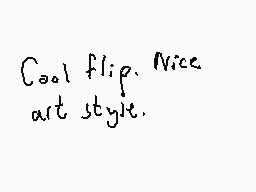 Cool flip. Nice
art style.